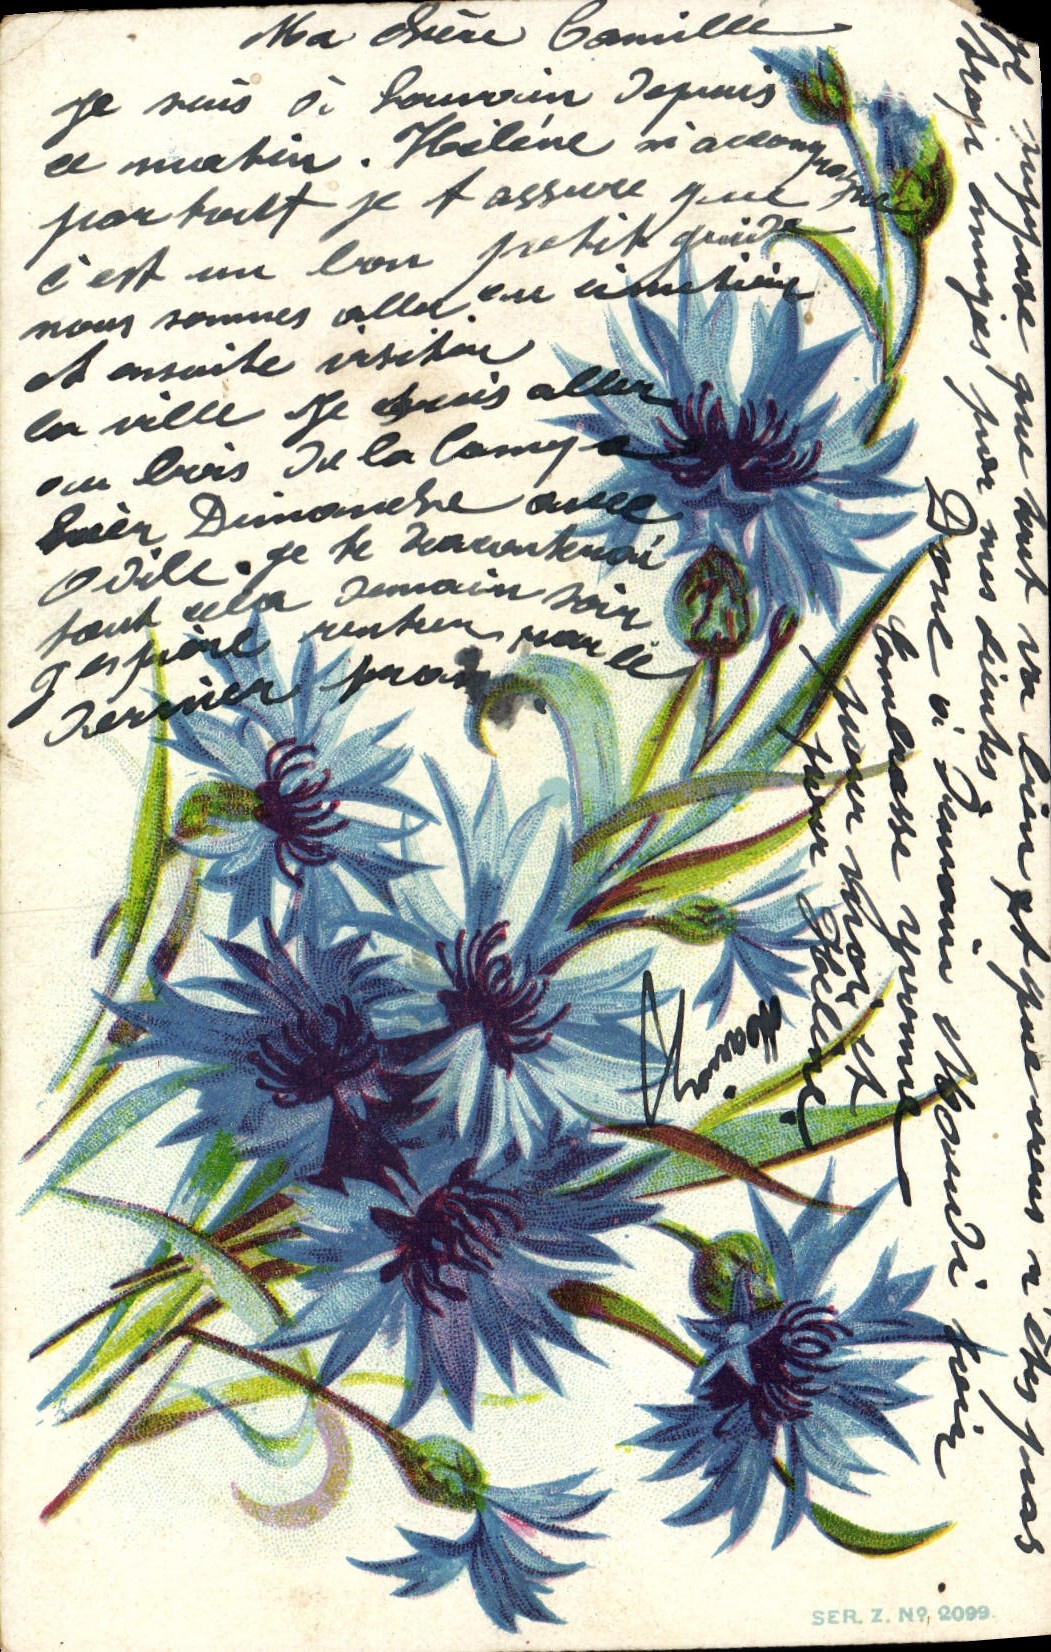 Ma chère Camille
Je suis à Louvain depuis
ce matin. Hélène m'accompagne
partout je t assure que
c'est un bon petit guide
nous sommes aller au cimetière
et ensuite visiter
la ville Je suis aller
au bois de la Campe
hièr Dimanche avec
Odile. Je te raconterai
tout cela demain soir
J'espère rentrer par le
dernier train.
Je suppose que tout va bien et que vous n'êtes pas
trop par mes clients
Donc à demain Mardi soir
Embrasse Yvonne
pour moi et
pour Hélène.
Marie
SER. Z. Nº. 2099.